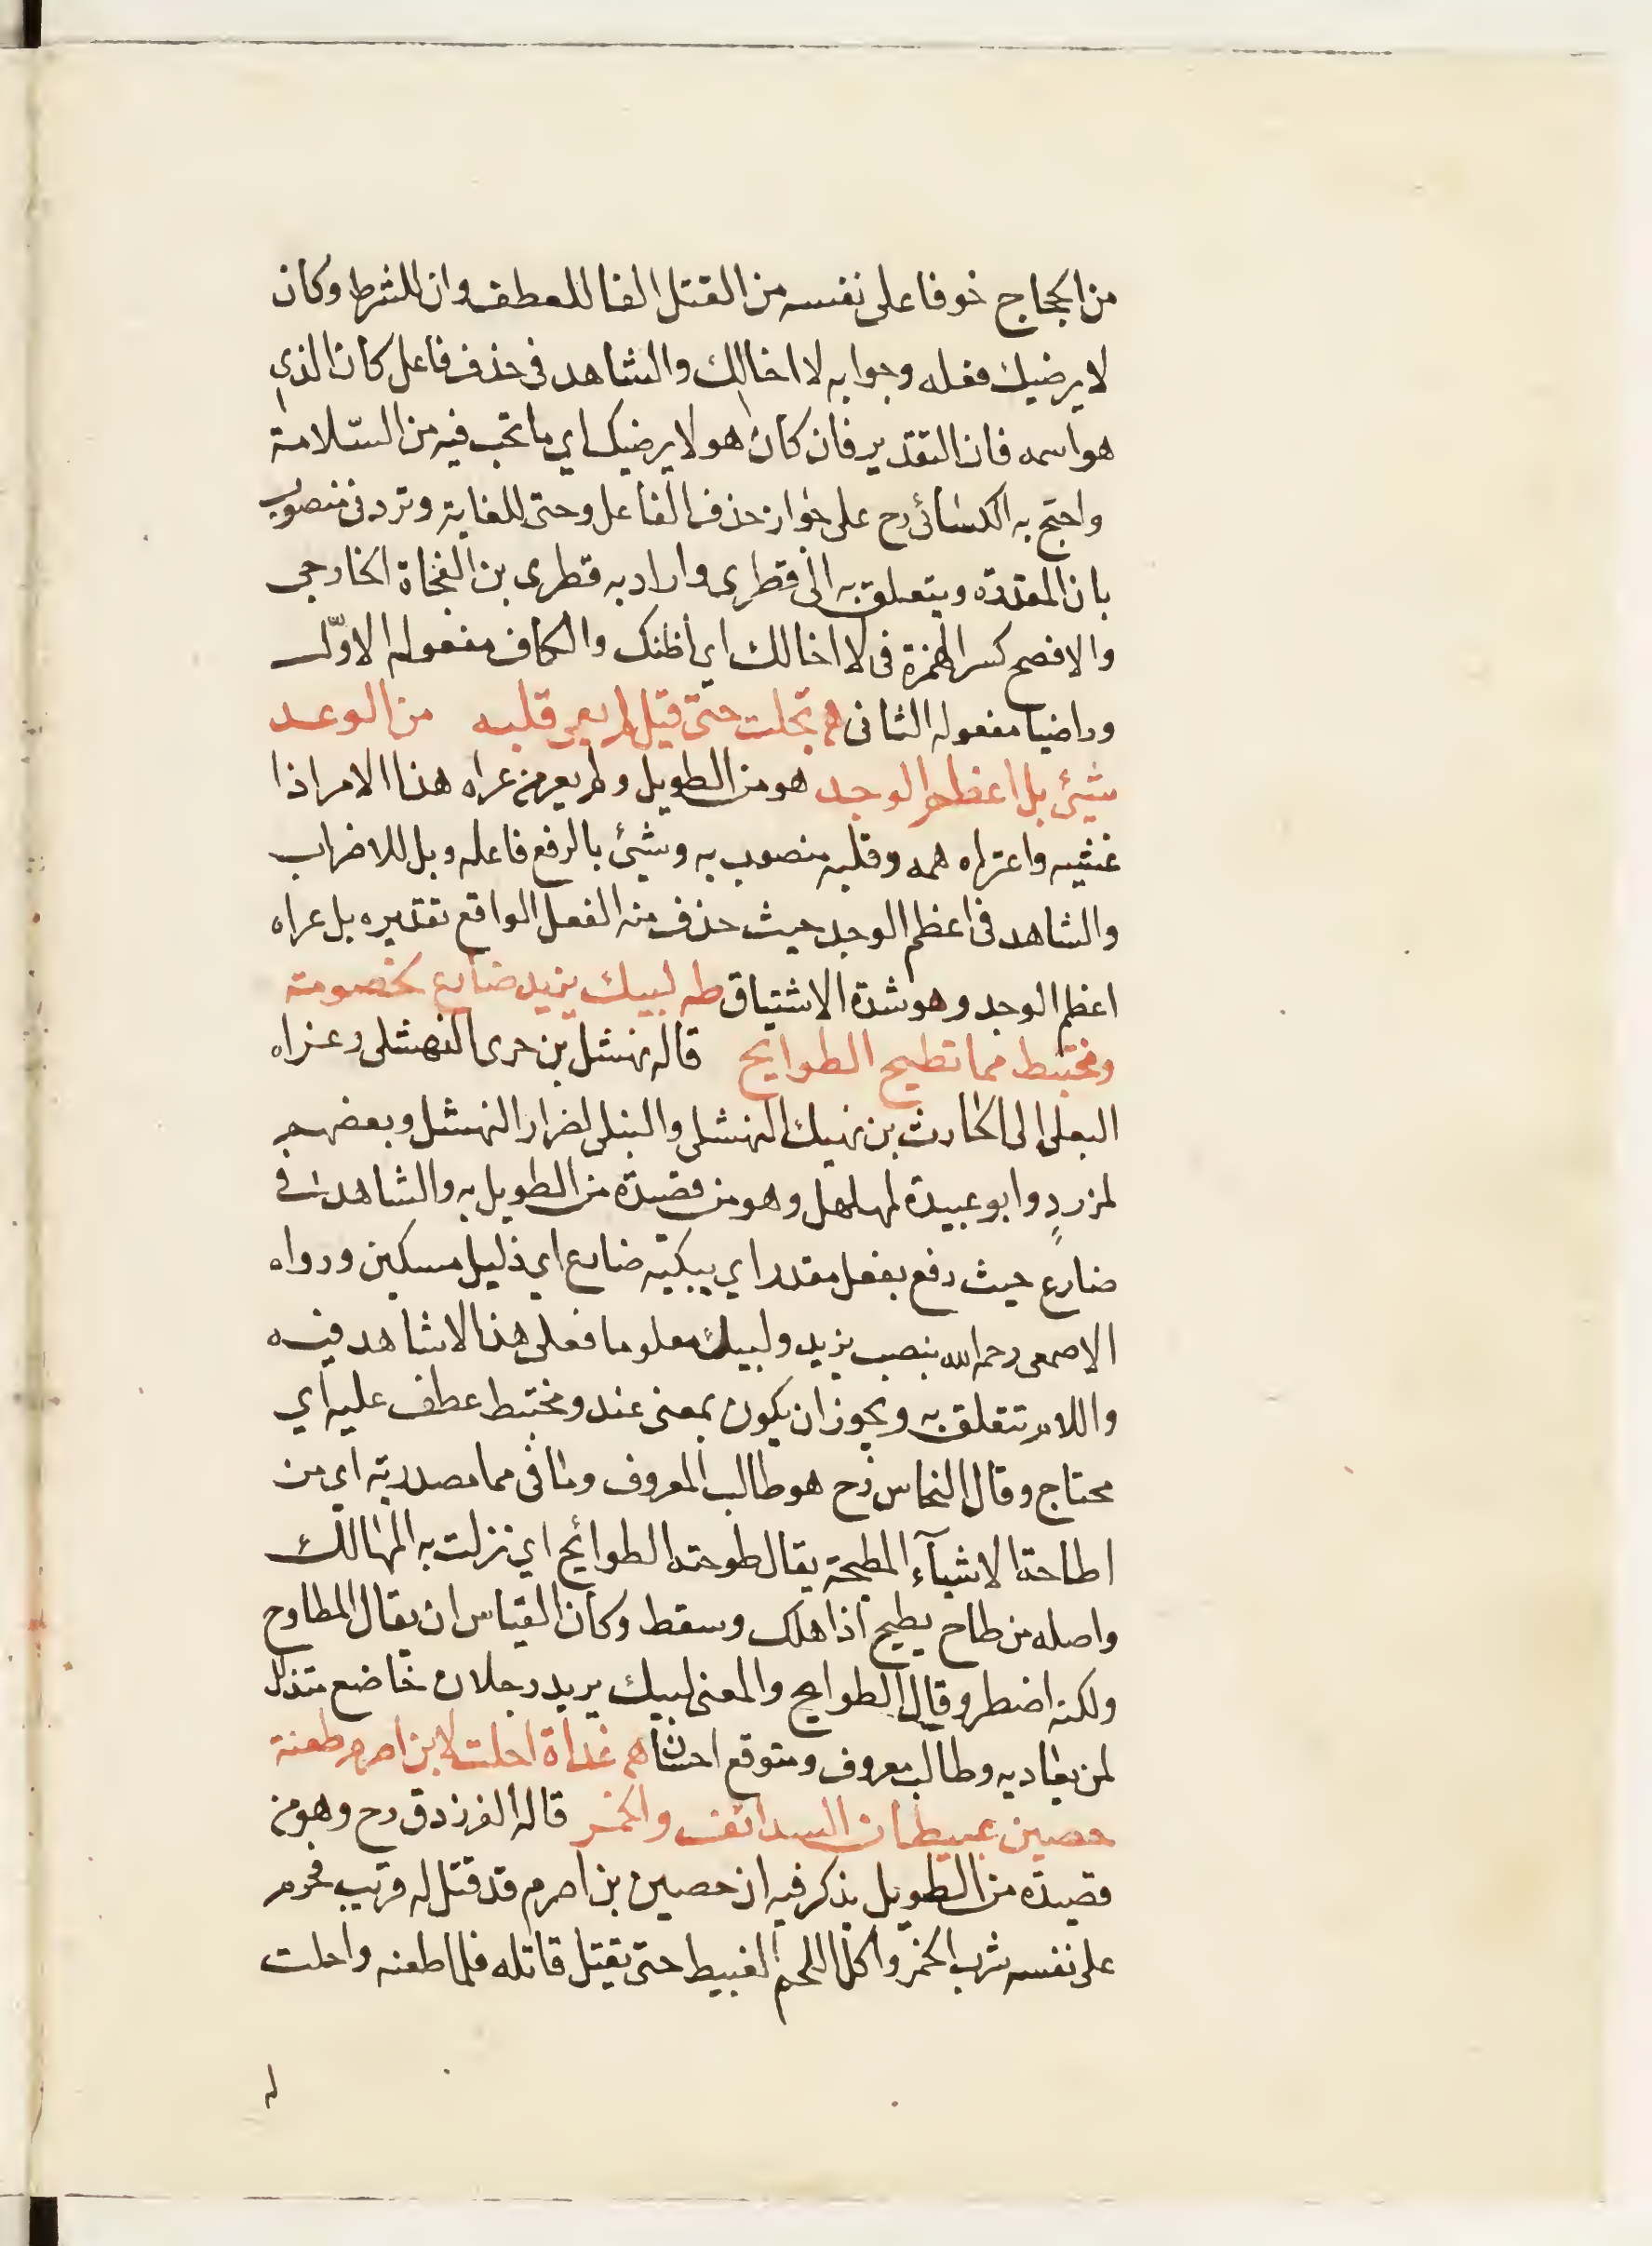 من الحجاج خوفا على نفسه من القتل الفا للعطف وان للشرط وكان
لا يرضيك فعله وجوابه لا اخالك والشاهد فى حذف فاعل كان الذي
هو اسمه فان التقدير فان كان هو لا يرضيك اي ما تحب فيه من السّلامة
واحتج به الكسائى رح على جواز حذف الفاعل وحتى للغاية وتردنى منصوب
بان المقدرة ويتعلق به الى قطرى واراد به قطرى بن الفجاة الخارجى
والافصح كسر الهمزة فى لا اخالك اي اظنك والكاف مفعوله الاوّل
وراضيا مفعوله الثانى هم تجلت حتى قيل لم يعر قلبه من الوعد
شئ بل اعظم الوجد هو من الطويل ولم يعر من عراه هذا الامر اذا
غشيه واعتراه همه وقلبه منصوب به وشئ بالرفع فاعله وبل للاضراب
والشاهد فى اعظم الوجد حيث حذف منه الفعل الواقع تقديره بل عراه
اعظم الوجد وهو شدة الاشتياق طه لبيك يزيد ضارع لخصومة
ومختبط مما تطيح الطوايح قاله نهشل بن حرى النهشلى وعزاه
البعلى الى الحارث بن نهيك النهشلى والنيلى لضرار النهشل وبعضهم
لمزردٍ وابو عبيدة لمهلهل وهو من قصيدة من الطويل به والشاهد فى
ضارع حيث رفع بفعل مقدر اي يبكيه ضارع اي ذليل مسكين ورواه
الاصمعى رحمه الله بنصب يزيد ولبيك معلوما فعلى هذا لا شاهد فيه
واللام تتعلق به ويجوز ان يكون بمعنى عند ومختبط عطف عليه اي
محتاج وقال النحاس رح هو طالب المعروف وما فى مما مصدرية اي من
اطاحة الاشيآء المطيحة يقال طوحته الطوائح اي نزلت به المهالك
واصله من طاح يطيح اذا هلك وسقط وكان القياس ان يقال المطاوح
ولكنه اضطر وقال الطوايح والمعنى لبيك يريد رجلان خاضع متذلل
لمن يعاديه وطالب معروف ومتوقع احسانا هم غداة احلت لابن اصرم طعنة
حصين عبيطات السدائف والخمر قاله الفرزدق رح وهو من
قصيدة من الطويل يذكر فيه ان حصين بن اصرم قد قتل له قريب فحرم
على نفسه شرب الخمر واكل اللحم الغبيط حتى يقتل قاتله فلما طعنه واحلت
له